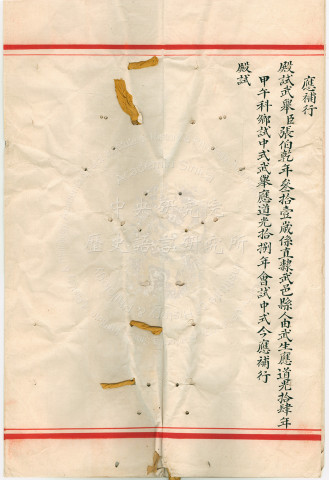 應補行
殿試武舉臣張伯乾年叁拾壹歲係直隸武邑縣人由武生應道光拾肆年
甲午科鄉試中式武舉應道光拾捌年會試中式今應補行
殿試
中央研究院
歷史語言研究所